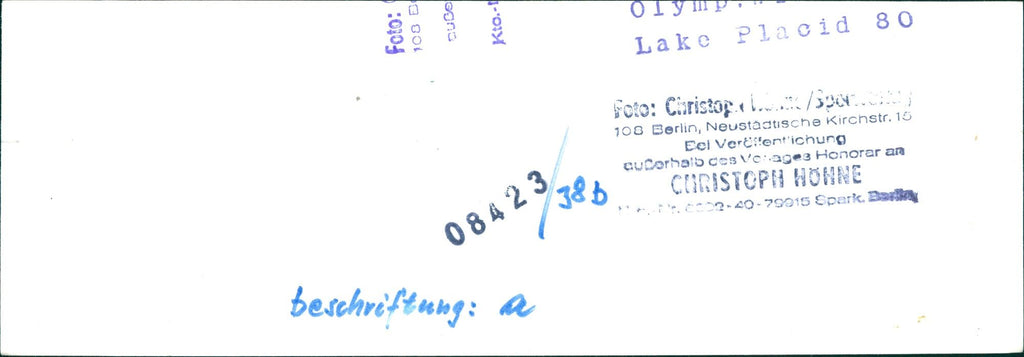 Foto:
108 Be
auße
Kto.-
Olymp.
Lake Placid 80
Foto: Christoph
108 Berlin, Neustädtische Kirchstr. 15
Bei Veröffentlichung
außerhalb des Verlages Honorar an
CHRISTOPH HÖHNE
40-79915 Spark. Berlin
08423/38b
beschriftung: a